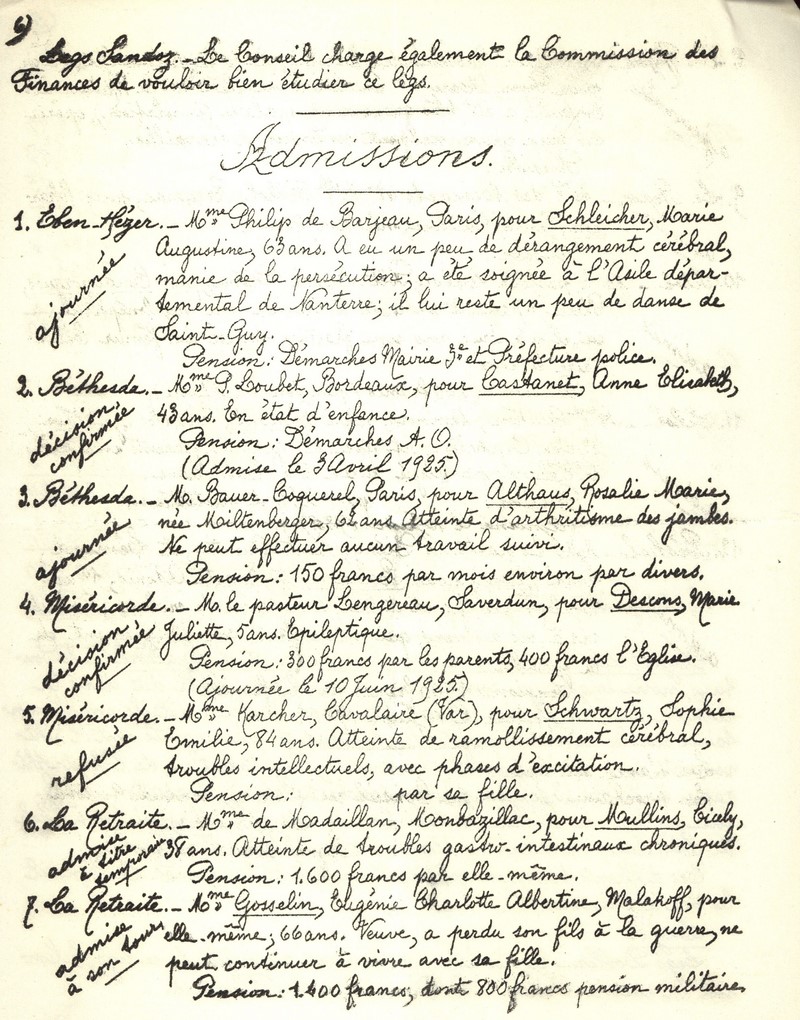 6)
Legs Sandoz.- Le Conseil charge également la Commission des
Finances de vouloir bien étudier ce legs.
Admissions.
1. Eben-Hézer.- Mme Philip de Barjeau, Paris, pour Schleicher, Marie
Augustine, 63 ans. A eu un peu de dérangement cérébral,
manie de la persécution; a été soignée à l'Asile dépar-
temental de Nanterre; il lui reste un peu de danse de
Saint-Guy.
ajournée
Pension: Démarches Mairie 3e et Préfecture police.
2. Béthesda.- Mme P. Loubet, Bordeaux, pour Castanet, Anne Elisabeth,
43 ans. En état d'enfance.
décision
confirmée
Pension: Démarches A.O.
(Admise le 3 Avril 1925.)
3. Béthesda.- M. Bauer-Coquerel, Paris, pour Althaus, Rosalie Marie,
née Miltenberger, 62 ans. Atteinte d'arthritisme des jambes.
Ne peut effectuer aucun travail suivi.
ajournée
Pension: 150 francs par mois environ par divers.
4. Miséricorde.- M. le pasteur Lengereau, Saverdun, pour Descons, Marie
Juliette, 5 ans. Epileptique.
décision
confirmée
Pension: 300 francs par les parents, 400 francs l'Eglise.
(Ajournée le 10 Juin 1925.)
5. Miséricorde.- Mme Karcher, Cavalaire (Var), pour Schwartz, Sophie
Emilie, 84 ans. Atteinte de ramollissement cérébral,
troubles intellectuels, avec phases d'excitation.
refusée
Pension: par sa fille.
6. La Retraite.- Mme de Madaillan, Monbazillac, pour Mullins, Cicely,
38 ans. Atteinte de troubles gastro-intestinaux chroniques.
admise
à titre
temporaire
Pension: 1.600 francs par elle-même.
7. La Retraite.- Mme Gosselin, Eugénie Charlotte Albertine, Malakoff, pour
elle-même; 66 ans. Veuve, a perdu son fils à la guerre, ne
peut continuer à vivre avec sa fille.
admise
à son tour
Pension: 1.400 francs, dont 800 francs pension militaire.